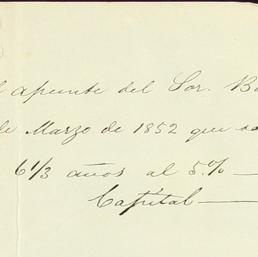 apunte del Sor. B
de Marzo de 1852 que
6 1/3 años al 5.% —
Capital —